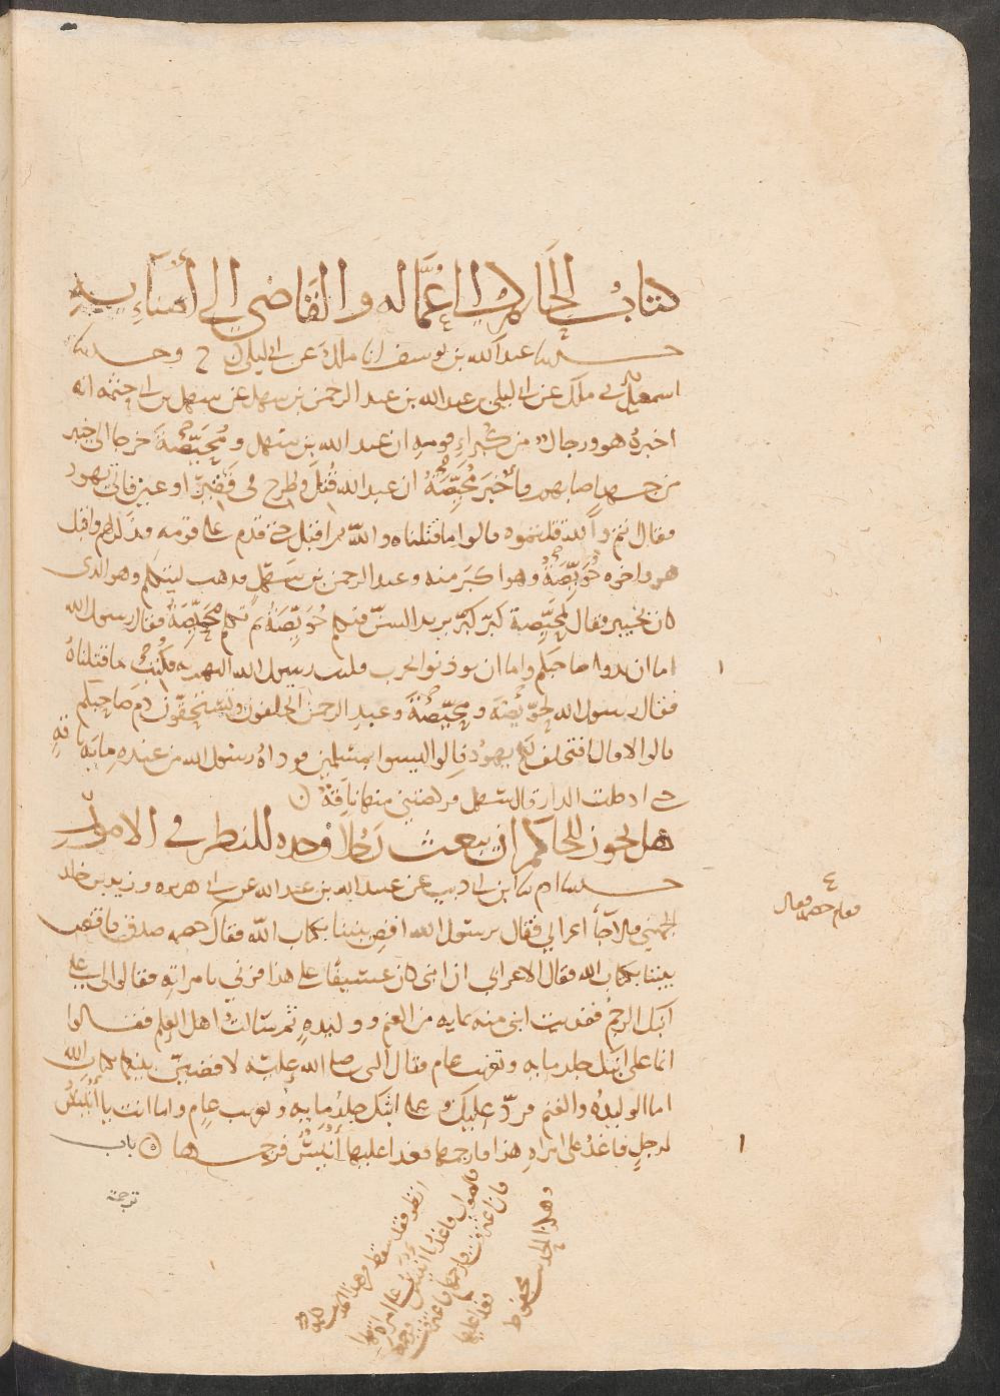 كتاب الحاكم الى عماله والقاضي الى أمنائه
حدثنا عبدالله بن يوسف انا ملك عن ابي ليلى ح وحدثنا
اسمعيل ملك عن ابي ليلى بن عبد الله بن عبد الرحمن بن سهل عن سهل بن ابي حثمة انه
اخبره هو ورجال من كبراء قومه ان عبد الله بن سهل ومحيصة خرجا الى خيبر
من جهد اصابهم فأخبر محيصة ان عبد الله قتل وطرح في فقير او عين فاتى يهود
فقال انتم والله قتلتموه قالوا ما قتلناه والله ثم اقبل حتى قدم على قومه فذكر لهم واقبل
هو واخوه حويصة وهو اكبر منه وعبد الرحمن بن سهل فذهب ليتكلم وهو الذي
كان بخيبر فقال لمحيصة كبر كبر يريد السن فتكلم حويصة ثم تكلم محيصة فقال رسول الله
اما ان يدوا صاحبكم واما ان يوذنوا بحرب فكتب رسول الله اليهم به فكتب ما قتلناه
فقال رسول الله لحويصة ومحيصة وعبد الرحمن اتحلفون وتستحقون دم صاحبكم
قالوا لا قال افتحلف لكم يهود قالوا ليسوا بمسلمين فوداه رسول الله من عنده مائة ناقة
حتى ادخلت الدار قال سهل فركضتني منها ناقة
هل يجوز للحاكم ان يبعث رجلا وحده للنظر في الامور
حدثنا ادم نا ابن ابي ذيب عن عبيد الله بن عبد الله عن ابي هريره وزيد بن خالد
الجهني قالا جأ اعرابي فقال يرسول الله اقض بيننا بكتاب الله فقال خصمه صدق فاقض
بيننا بكتاب الله فقال الاعرابي ان ابني كان عسيفا على هذا فزنى بامراته فقالوا لي على
ابنك الرجم ففديت ابني منه بمايه من الغنم ووليدة ثم سالت اهل العلم فقالوا
انما على ابنك جلد مايه وتغريب عام فقال النبي صلى الله عليه لاقضين بينكما بكتاب الله
اما الوليدة والغنم فرد عليك وعلى ابنك جلد مايه وتغريب عام واما انت يا أنيس
لرجل فاغد على امراة هذا فارجمها فغدا عليها أنيس فرجمها باب
ترجمة
فقام خصمه فقال
انظر فقد سقط من هذا
فاغد يا انيس على امراة هذا
فان اعترفت فارجمها فاعترفت فرجمها
فغدا عليها
وهذا الحديث محفوظ